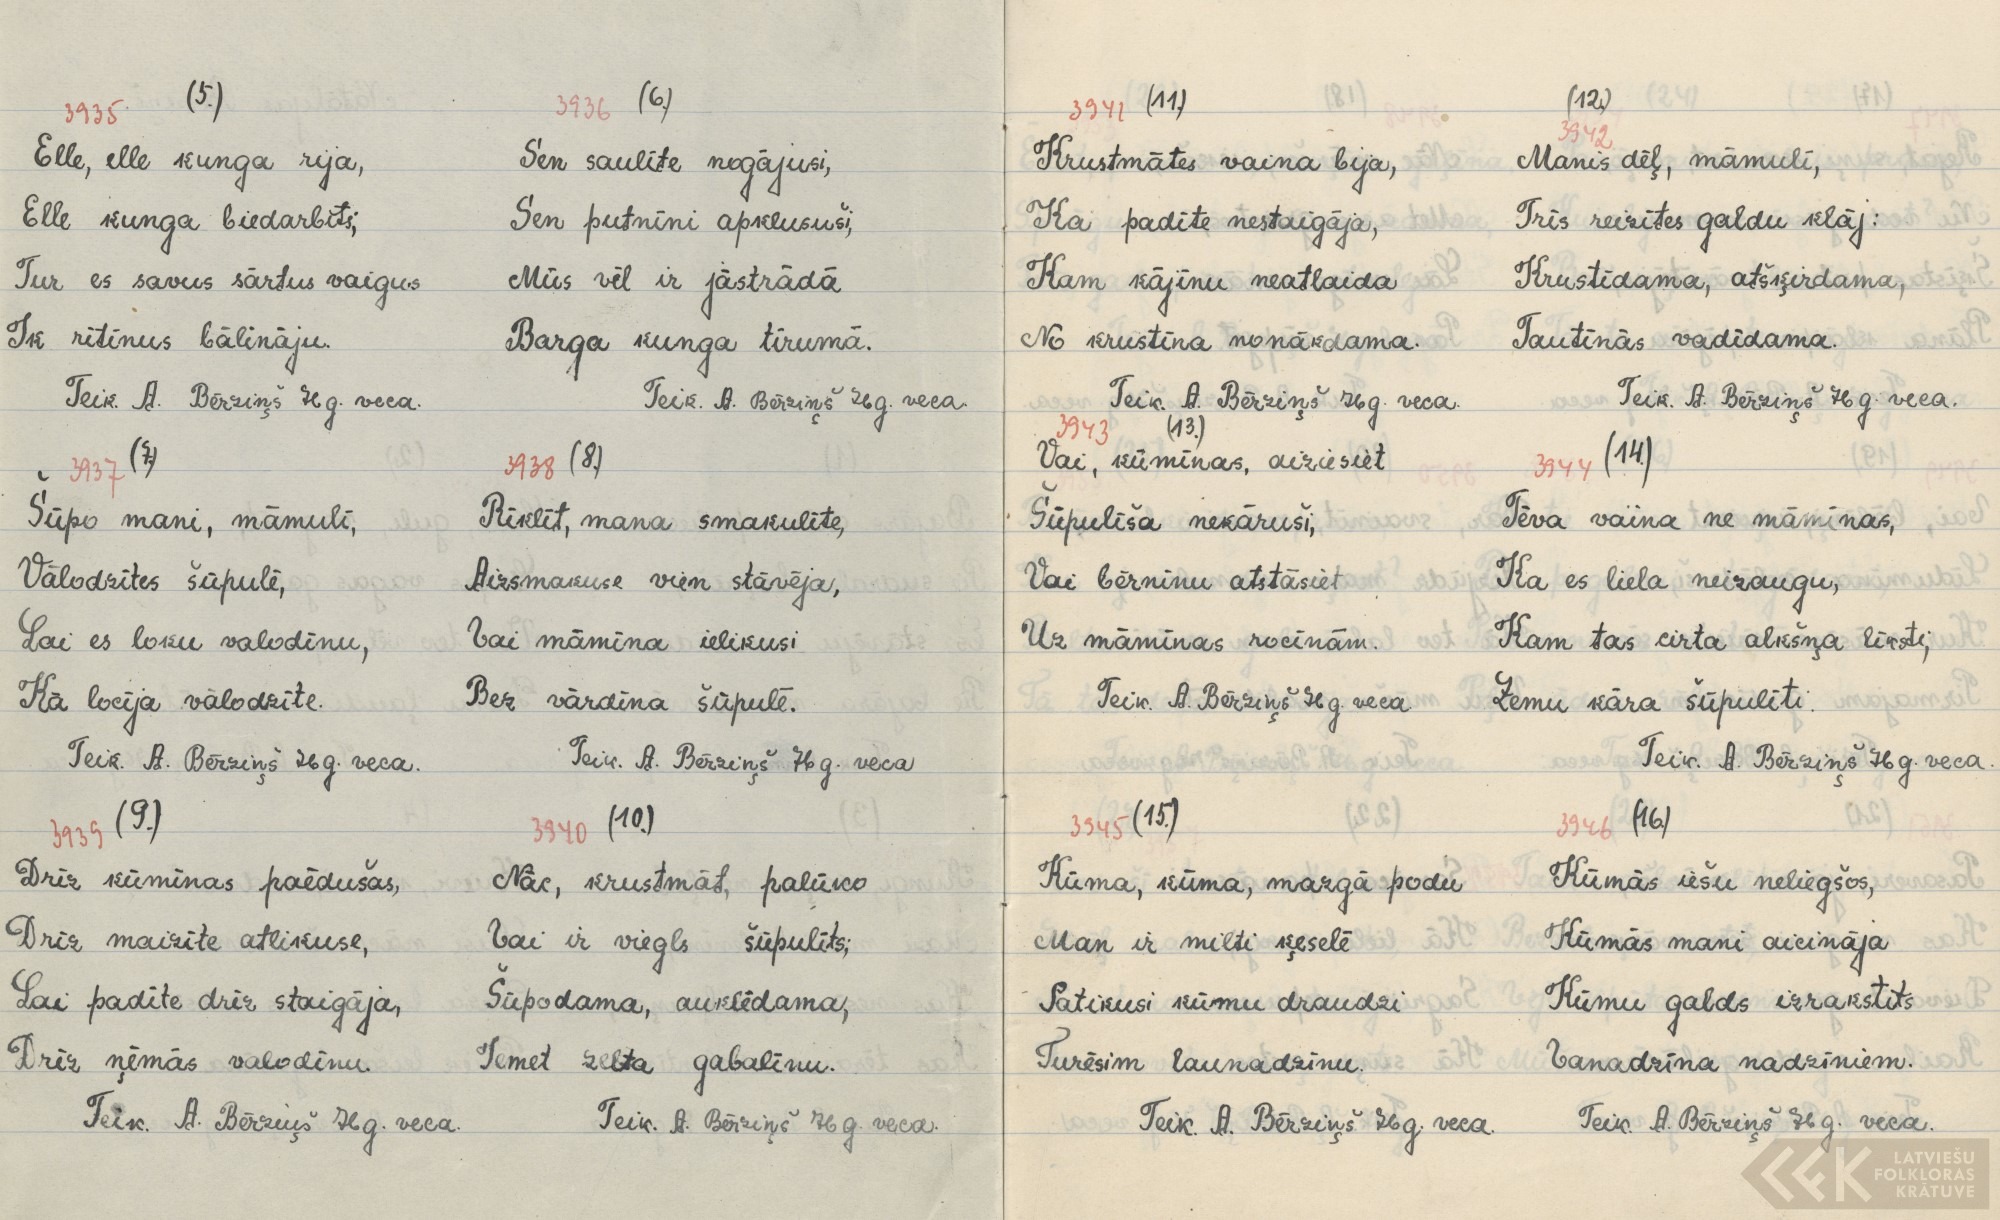 3935 (5.)
Elle, elle kunga rija,
Elle kunga biedarbīts;
Tur es savus sārtus vaigus
Ik rītīnus bālināju.
Teik. A. Bērziņš 76 g. veca.
3936 (6.)
Sen saulīte nogājusi,
Sen putnīni apklusuši,
Mūs vēl ir jāstrādā
Barga kunga tīrumā.
Teik. A. Bērziņš 76 g. veca.
3937 (7.)
Šūpo mani, māmulī,
Vālodzītes šūpulē,
Lai es loku valodīnu,
Kā locīja vālodzīte.
Teik. A. Bērziņš 76 g. veca.
3938 (8.)
Rīklīt, mana smakulīte,
Aizsmakuse vien stāvēja,
Vai māmīna ielikusi
Bez vārdīna šūpulē.
Teik. A. Bērziņš 76 g. veca
3939 (9.)
Drīz kūmīnas paēdušas,
Drīz maizīte atlikuse,
Lai padīte drīz staigāja,
Drīz ņēmās valodīnu.
Teik. A. Bērziņš 76 g. veca.
3940 (10.)
Nāc, krustmāt, palūko
Vai ir viegls šūpulīts;
Šūpodama, auklēdama,
Iemet zelta gabalīnu.
Teik. A. Bērziņš 76 g. veca.
3941 (11.)
Krustmātes vaina bija,
Ka padīte nestaigāja,
Kam kājīnu neatlaida
No krustīna nonākdama.
Teik. A. Bērziņš 76 g. veca.
(12.)
3942
Manis dēļ, māmulī,
Trīs reizītes galdu klāj:
Krustīdama, atšķirdama,
Tautīnās vadīdama.
Teik. A. Bērziņš 76 g. veca.
3943 (13.)
Vai, kūmīnas, aiziesiet
Šūpulīša nekāruši,
Vai bērnīnu atstāsiet
Uz māmīnas rocīnām.
Teik. A. Bērziņš 76 g. veca
3944 (14.)
Tēva vaina ne māmīnas,
Ka es liela neizaugu,
Kam tas cirta alkšņa līksti;
Zemu kāra šūpulīti.
Teik. A. Bērziņš 76 g. veca.
3945 (15.)
Kūma, kūma, mazgā podu
Man ir milti ķeselē
Satikusi kūmu draudzi
Turēsim launadzīnu.
Teik. A. Bērziņš 76 g. veca.
3946 (16.)
Kūmās iešu neliegšos,
Kūmās mani aicināja
Kūmu galds izrakstīts
Vanadzīna nadzīniem.
Teik. A. Bērziņš 76 g. veca.
LATVIEŠU
FOLKLORAS
KRĀTUVE